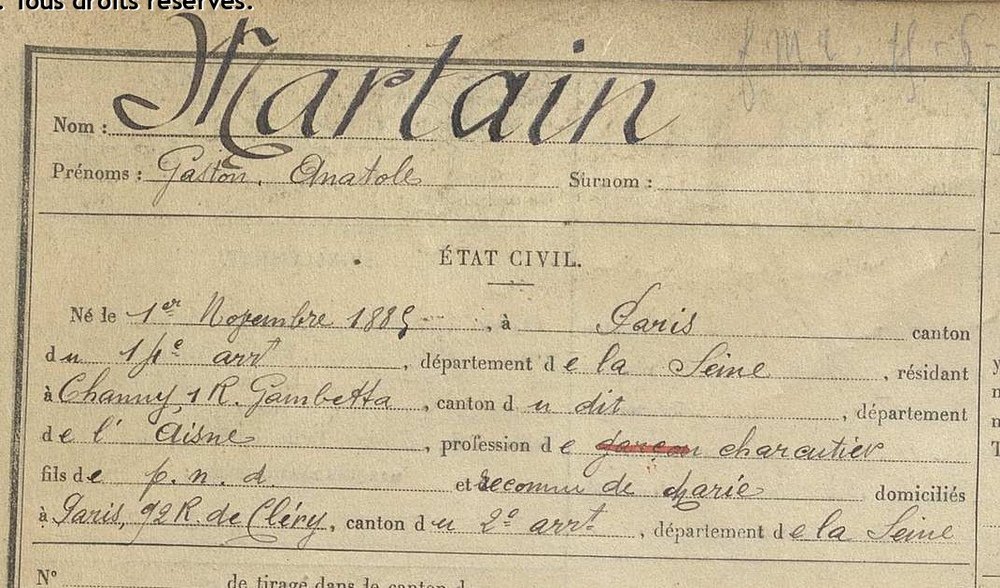 . Tous droits réservés.
Nom : Martain
Prénoms : Gaston. Anatole Surnom :
ÉTAT CIVIL.
Né le 1er Novembre 1885, à Paris canton
du arrt, département de la Seine, résidant
à Chauny, 1 R. Gambetta, canton du dit, département
de l'Aisne, profession de garçon charcutier
fils de p. n. d. et reconnu de Marie domiciliés
à Paris, 92 R. de Cléry, canton du 2e arrt, département de la Seine
N° de tirage dans le canton d